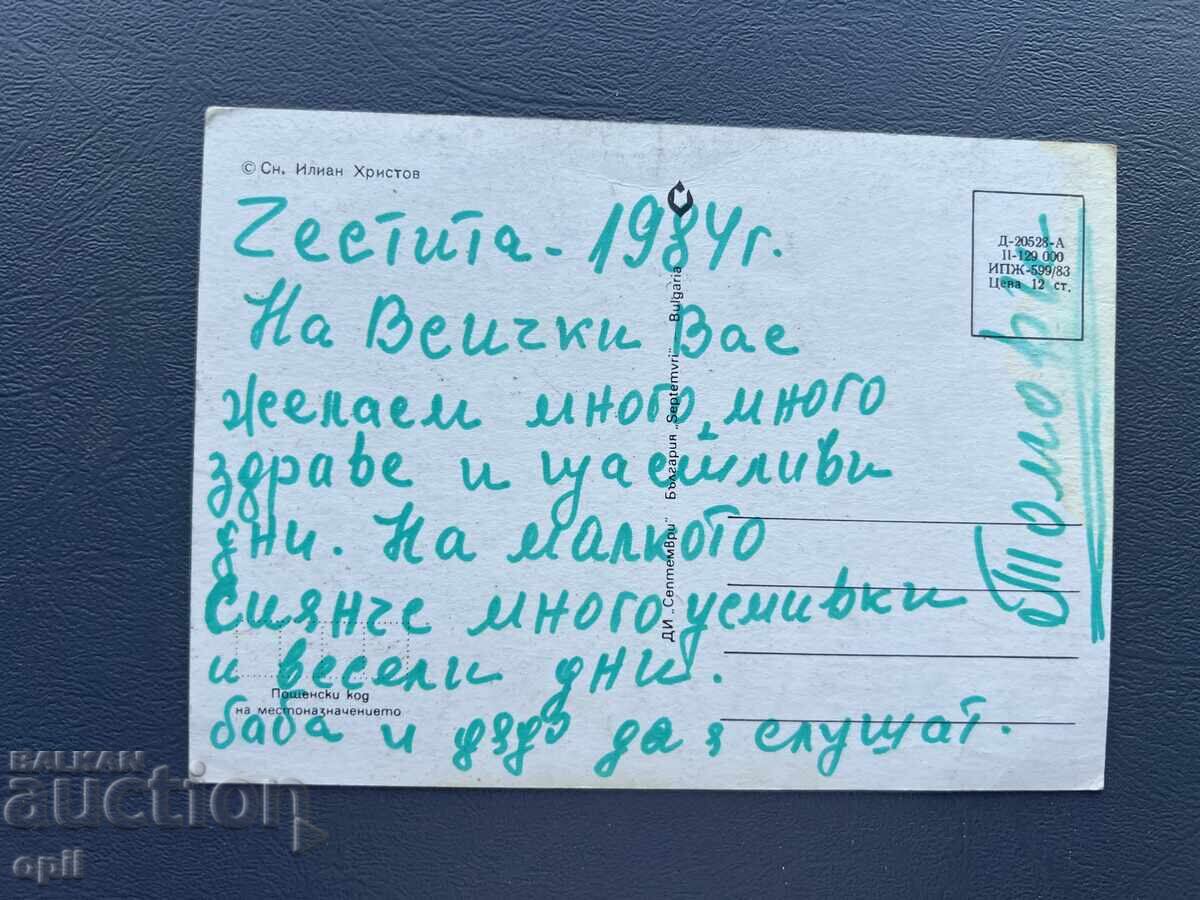 © Сн. Илиан Христов
Честита - 1984 г.
На Всички Вас
желаем много, много
здраве и щастливи
дни. На малкото
Сиянче много усмивки
и весели дни.
баба и дядо да я слушат.
Томови
Д-20528-А
II-129 000
ИПЖ-599/83
Цена 12 ст.
ДИ „Септември" България „Septemvri" — Bulgaria
Пощенски код
на местоназначението
BALKAN
auction
opil